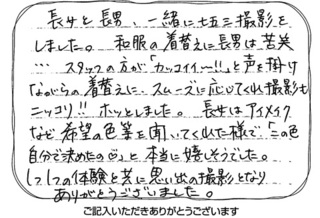 長女と長男、一緒に七五三撮影を
しました。和服の着替えに長男は苦笑
… スタッフの方が「カッコイイ〜!!」と声を掛け
ながらの着替えに、スムーズに応じてくれ撮影も
ニッコリ!! ホッとしました。長女はアイメイク
など希望の色等を聞いてくれた様で「この色
自分で決めたの♡」と本当に嬉しそうでした。
1つ1つの体験と共に思い出の撮影となり
ありがとうございました。
ご記入いただきありがとうございます